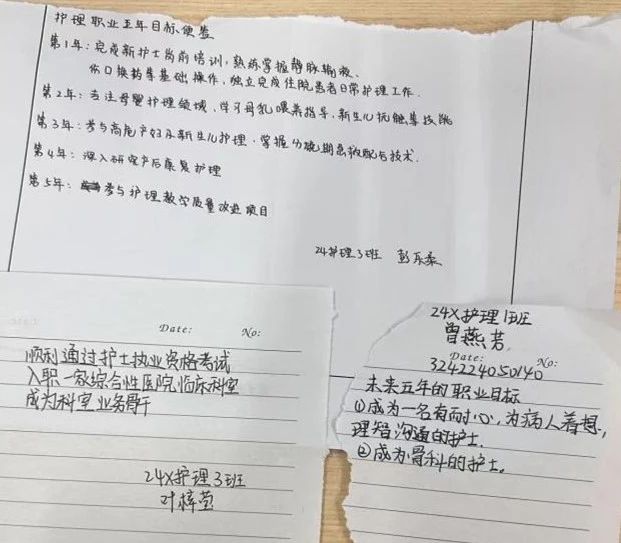 护理职业五年目标便签
第1年:完成新护士岗前培训,熟练掌握静脉输液、
伤口换药等基础操作,独立完成住院患者日常护理工作.
第2年:专注母婴护理领域,学习母乳喂养指导,新生儿抚触等技能
第3年:参与高危产妇及新生儿护理,掌握分娩期急救配合技术.
第4年:深入研究产后康复护理
第5年:参与护理教学质量改进项目
24护理3班 彭乐柔
Date: No:
顺利通过护士执业资格考试
入职一家综合性医院临床科室
成为科室业务骨干
24X护理3班
叶梓莹
24X护理1班
曾燕芳
Date: No:
324224050140
未来五年的职业目标
①成为一名有耐心,为病人着想,
理智沟通的护士.
②成为骨科的护士。